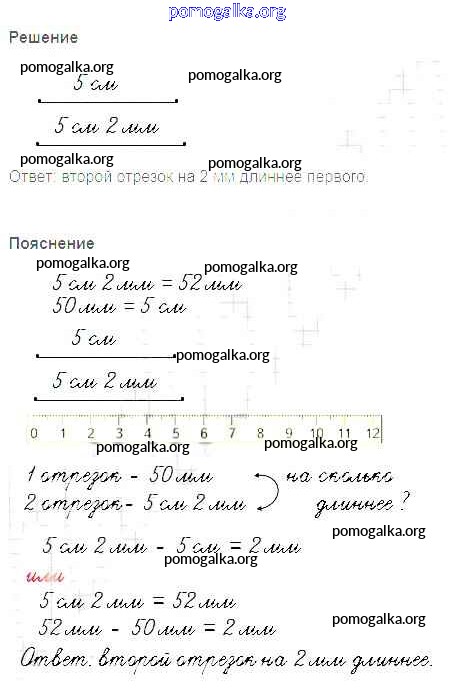 pomogalka.org
Решение
pomogalka.org
pomogalka.org
5 см
5 см 2 мм
pomogalka.org
pomogalka.org
Ответ: второй отрезок на 2 мм длиннее первого.
Пояснение
pomogalka.org
pomogalka.org
5 см 2 мм = 52 мм
50 мм = 5 см
5 см
pomogalka.org
5 см 2 мм
0 1 2 3 4 5 6 7 8 9 10 11 12
pomogalka.org
pomogalka.org
1 отрезок - 50 мм на сколько
2 отрезок - 5 см 2 мм длиннее?
pomogalka.org
5 см 2 мм - 5 см = 2 мм
pomogalka.org
или
5 см 2 мм = 52 мм
pomogalka.org
52 мм - 50 мм = 2 мм
Ответ: второй отрезок на 2 мм длиннее.
pomogalka.org